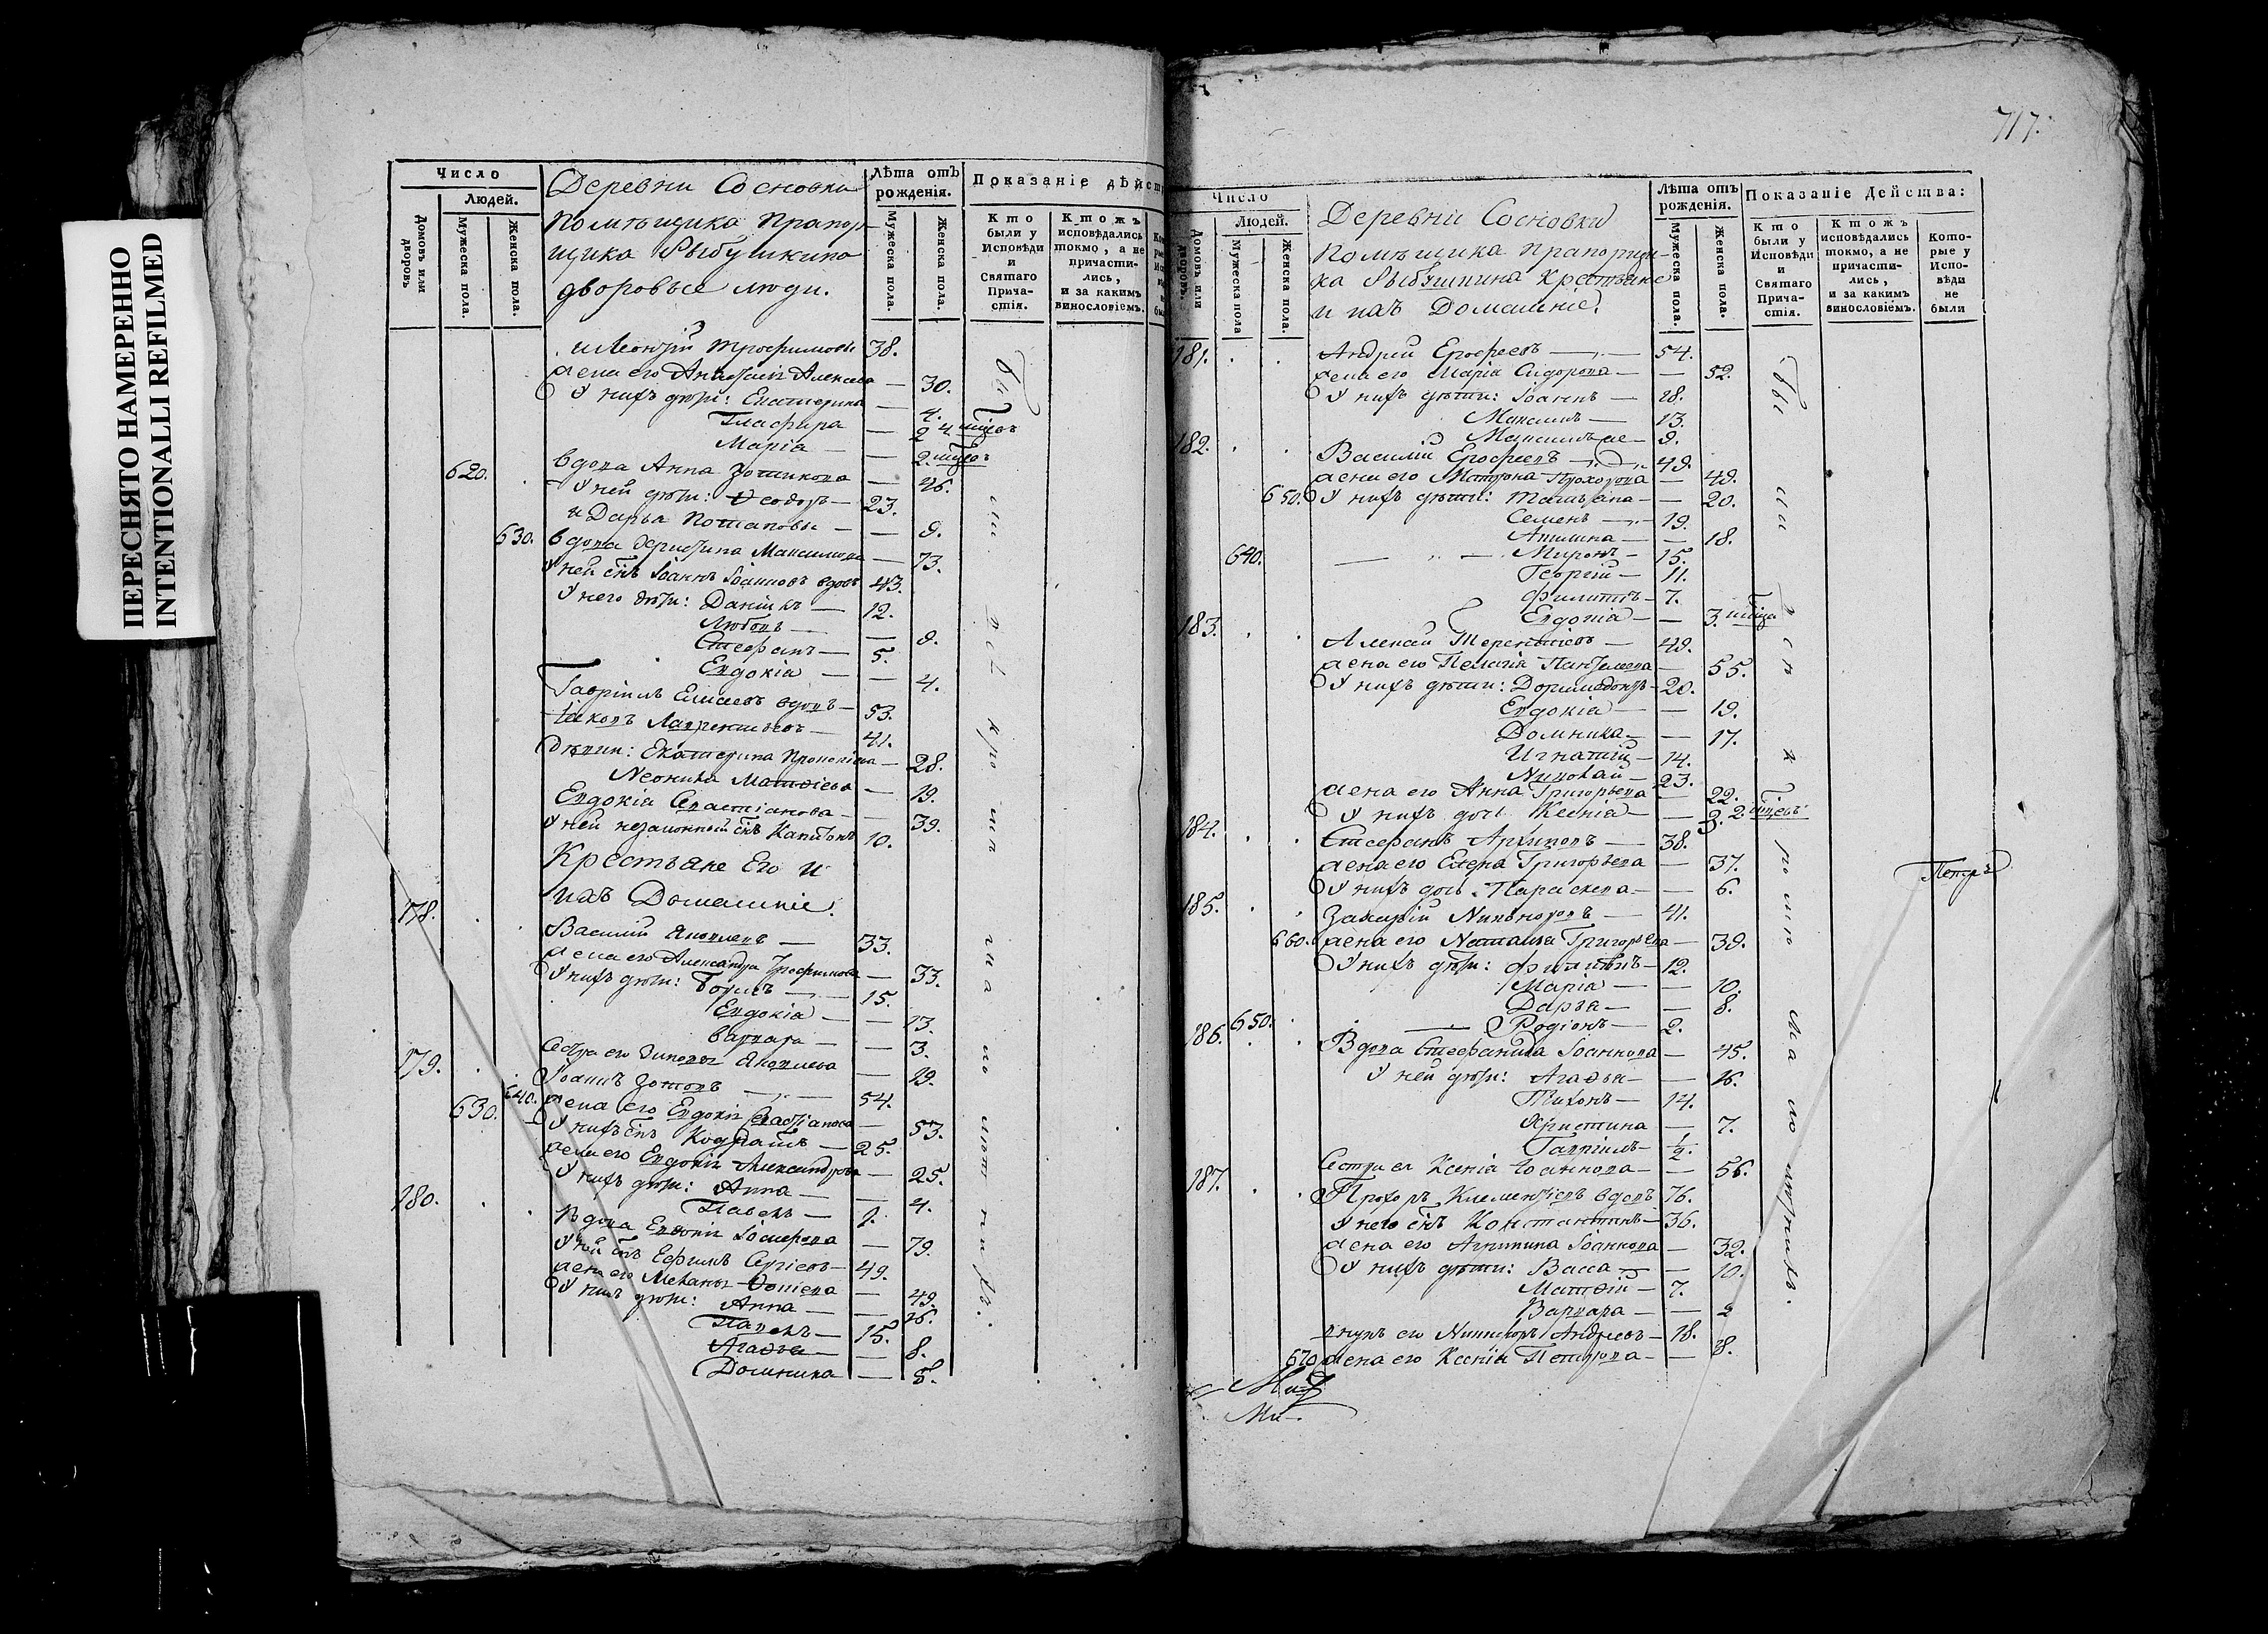 ПЕРЕСНЯТО НАМЕРЕННО
INTENTIONALLI REFILMED
Число
Людей.
Домовъ или дворовъ
Мужеска пола.
Женска пола.
Деревни Сосновки
помѣщика Прапор-
щика Рыбушкина
дворовые люди.
Лѣта отъ рожденія.
Мужеска пола.
Женска пола.
Показаніе дѣйст
Кто были у Исповѣди и Святаго Прича-стія.
Ктожъ исповѣдались токмо, а не причасти-лись, и за какимъ винословіемъ.
Леонтій Трофимовъ 38.
жена его Алексѣева — 30.
У нихъ дѣти: Екатерина — 4.
Глафира — 2
Марія — 2.
620. вдова Анна Зотикова — 46.
У ней дѣти: Ѳеодоръ — 23.
и Дарья Потаповы — 9.
630. вдова Христина Максимова — 73.
У ней снъ Іоаннъ Іоанновъ вдовъ 43.
У него дѣти: Даніилъ — 12.
Любовь — 9.
Стефанъ — 5.
Евдокія — 4.
Гавріилъ Елисеевъ вдовъ — 53.
Іаковъ Лаврентьевъ — 41.
Дѣвки: Екатерина Прокопіева — 28.
Матѳіева — 19.
Евдокія Севастіанова — 39.
У ней незаконный снъ Капитонъ 10.
Крестьяне Его и
ихъ Домашніе.
178. Василій Яковлевъ — 33.
жена его Александра Трофимова — 33.
У нихъ дѣти: Борисъ — 15.
Евдокія — 13.
Варвара — 3.
Сестра его Яковлева — 19.
179. Іоаннъ Зотовъ — 54.
640. жена его Евдокія Севастіанова — 53.
630. У нихъ снъ Кодратъ — 25.
жена его Евдокія Александрова — 25.
У нихъ дѣти: Анна — 4.
Павелъ — 1.
180. Вдова Евдокія Іосифова — 79.
У ней снъ Ефимъ Сергіевъ — 49.
жена его Меланья — 49.
У нихъ дѣти: Анна — 16.
Павелъ — 15.
Агаѳья — 8.
Домника — 8.
бы ли всѣ
717.
Число
Людей.
Домовъ или дворовъ.
Мужеска пола
Женска пола.
Деревни Сосновки
Помѣщика Прапорщи-
ка Рыбушкина Крестьяне
и ихъ Домашніе.
Лѣта отъ рожденія.
Мужеска пола.
Женска пола.
Показаніе Действа:
Кто были у Исповѣди и Святаго Прича-стія.
Ктожъ исповѣдались токмо, а не причасти-лись, и за какимъ винословіемъ.
Кото-рые у Испо-вѣди не были
181. Андрей Ерофеевъ — 54.
жена его Марія Сидорова — 52.
У нихъ дѣти: Іоаннъ — 18.
Максимъ — 13.
Максимъ же — 9.
182. Василій Ерофеевъ — 49.
жена его Матрона Прохорова — 49.
650. У нихъ дѣти: Татьяна — 20.
Семенъ — 19.
Акилина — 18.
640. Миронъ — 15.
Георгій — 11.
Филиппъ — 7.
Евдокія — 3.
183. Алексѣй Терентіевъ — 49.
жена его Пелагія Пантелеева — 55.
У нихъ дѣти: Доримедонтъ — 20.
Евдокія — 19.
Домника — 17.
Игнатій — 14.
Николай — 23.
жена его Анна Григорьева — 22.
У нихъ дочь Ксенія — 2.
184. Стефанъ Архиповъ — 38.
жена его Елена Григорьева — 37.
У нихъ дочь Параскева — 6.
185. Захарій Никоноровъ — 41.
660. жена его Наталья Григорьева — 39.
У нихъ дѣти: Филиппъ — 12.
Марія — 10.
Дарья — 8.
650. Родіонъ — 2.
186. Вдова Стефанида Іоаннова — 45.
У ней дѣти: Агаѳья — 16.
Тихонъ — 14.
Христина — 7.
Гавріилъ — 1/2.
Сестра ея Ксенія Іоаннова — 56.
187. Прохоръ Клементіевъ вдовъ 76.
У него снъ Константинъ — 36.
жена его Агрипина Іоаннова — 32.
У нихъ дѣти: Васса — 10.
Матѳій — 7.
Варвара — 2
внукъ его Никифоръ Андреевъ — 18.
670 жена его Ксенія Петрова — 18.
бы ли всѣ
Петръ